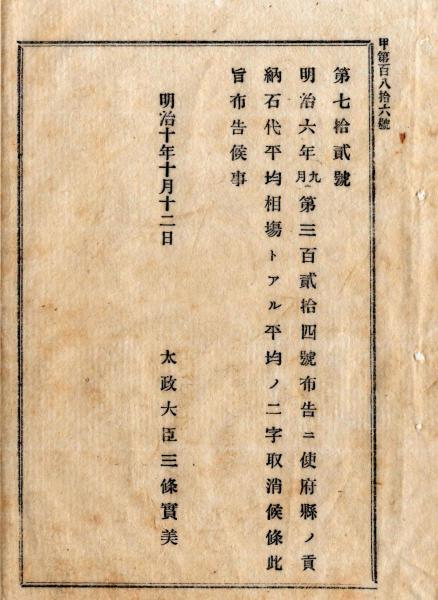 甲第百八拾六號
第七拾貳號
明治六年九月第三百貳拾四號布告ニ使府縣ノ貢
納石代平均相塲トアル平均ノ二字取消候條此
旨布告候事
明治十年十月十二日
太政大臣三條實美